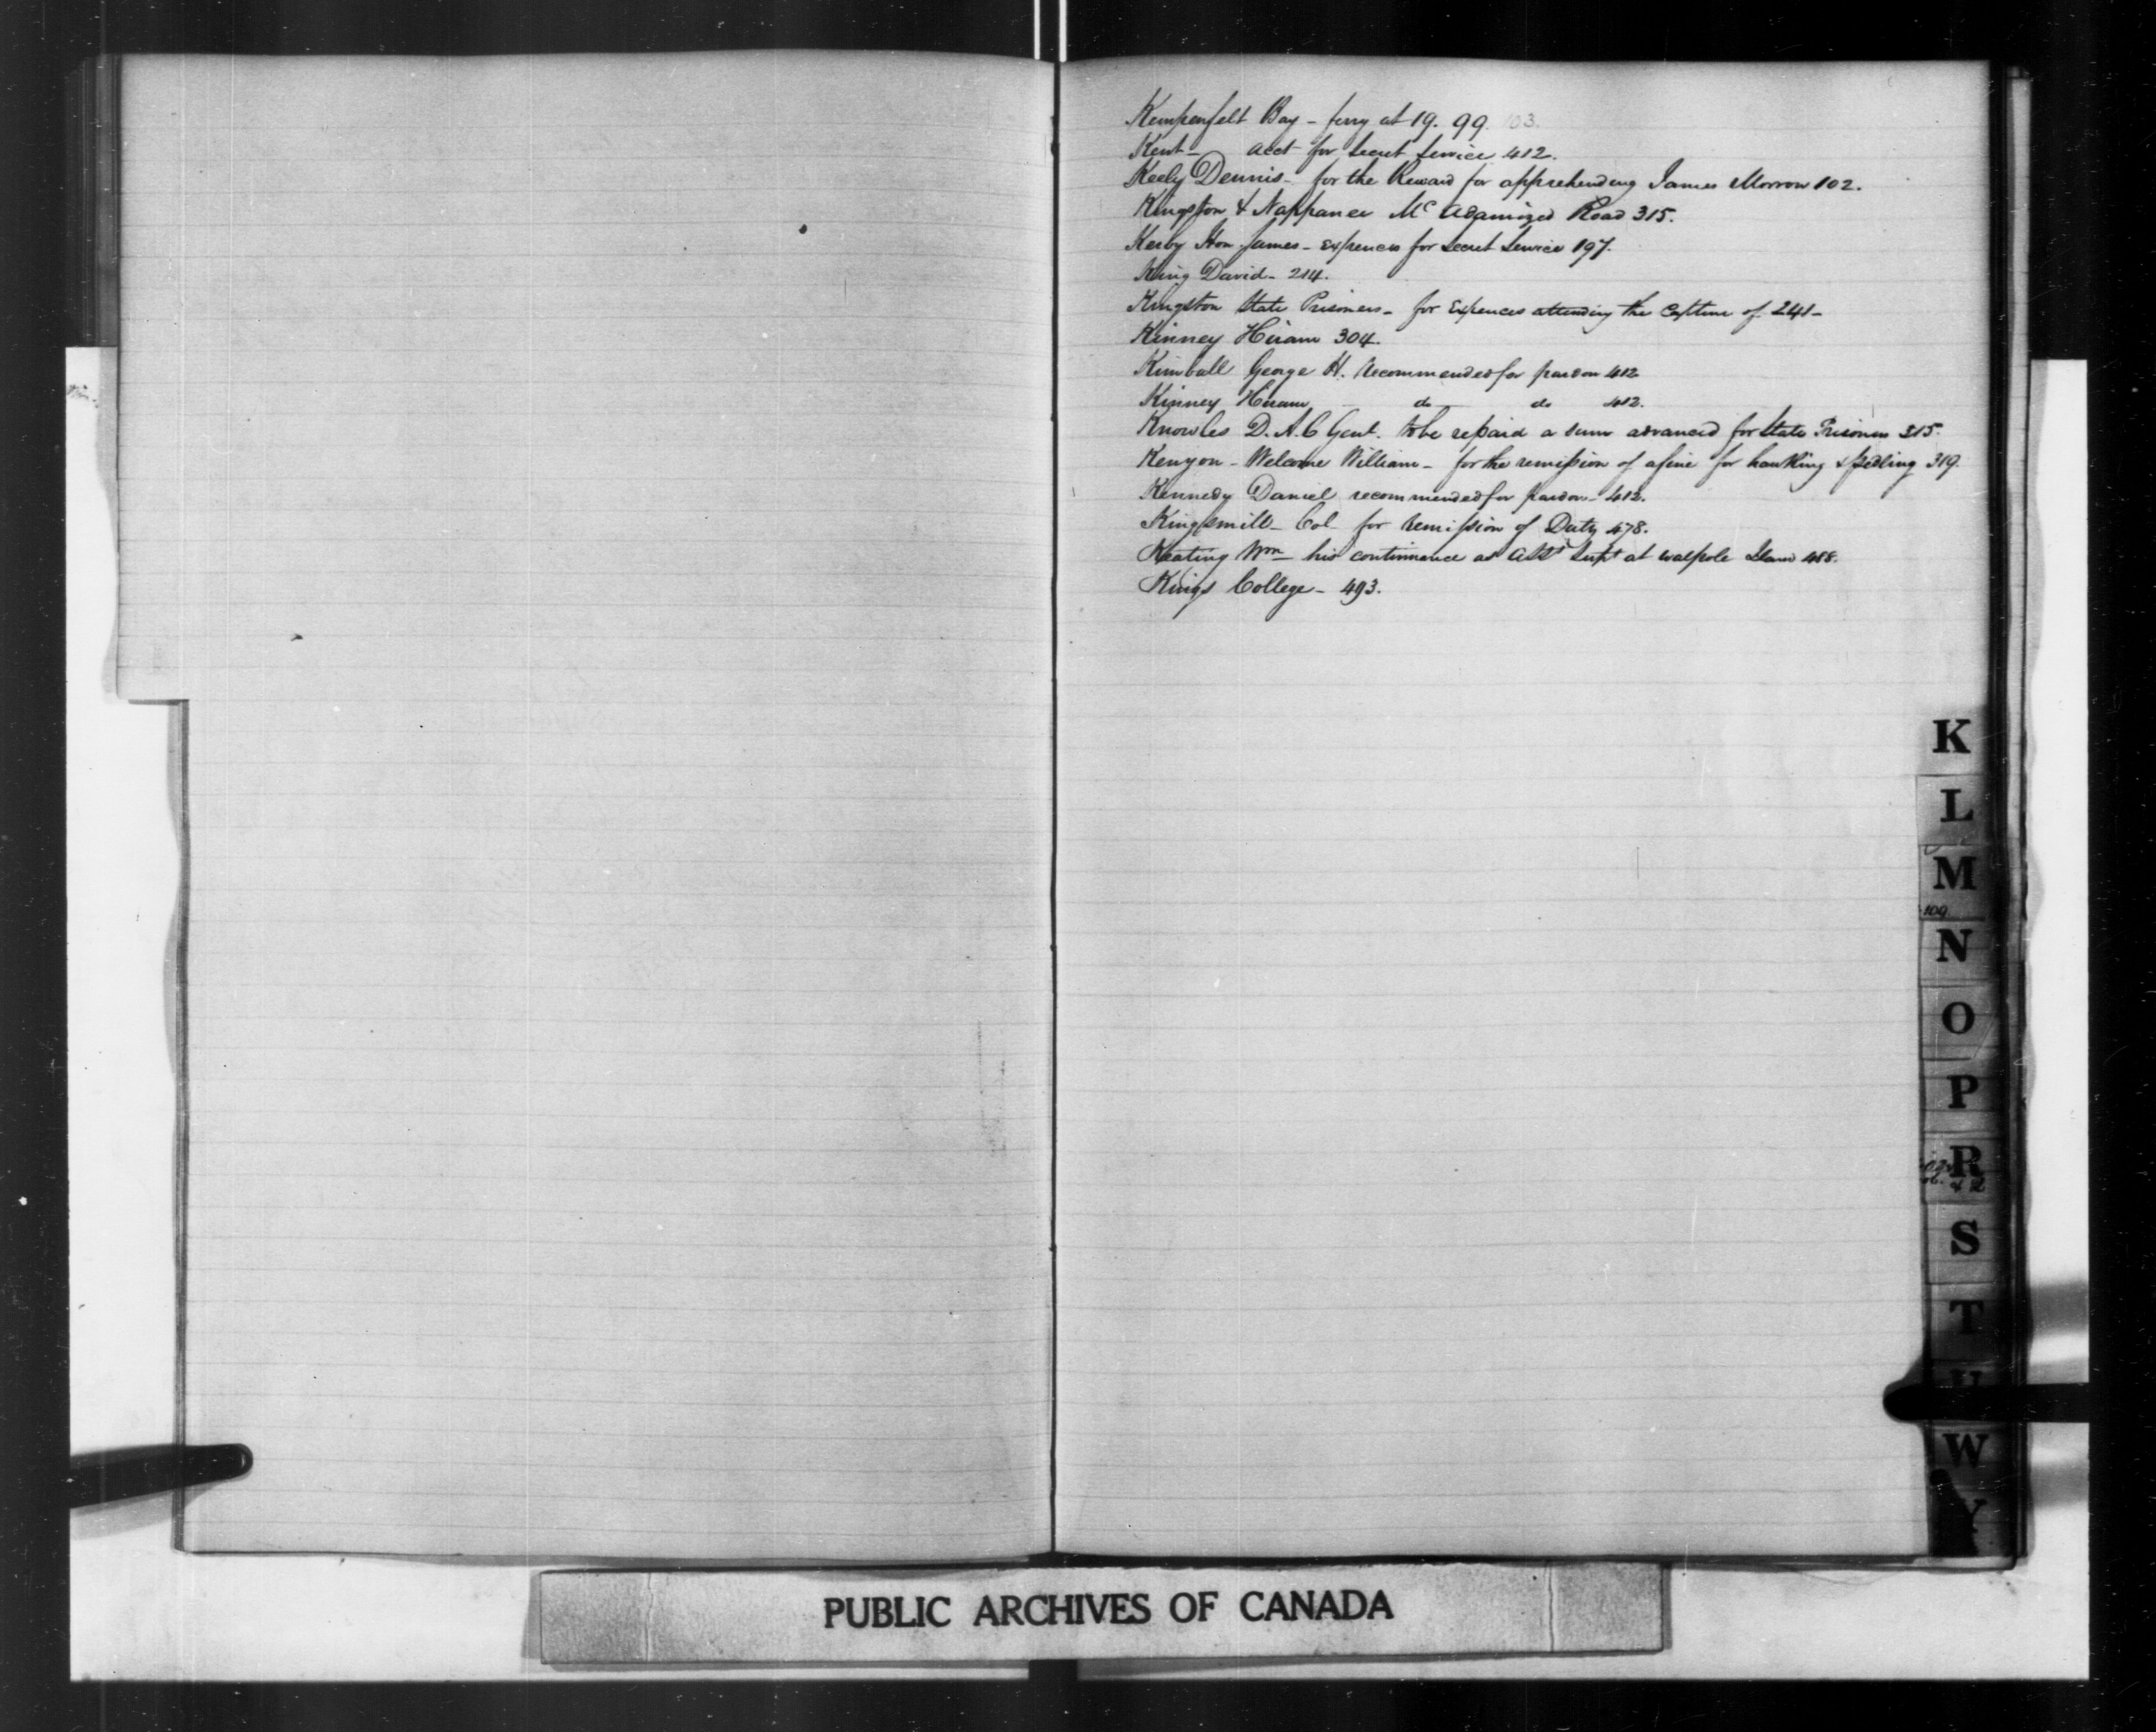 Kempenfelt Bay - ferry at 19. 99. 103.
Kent - acct for Secret Service 412.
Keely Dennis - for the Reward for apprehending James Morrow 102.
Kingston & Nappanee Mc Adamized Road 315.
Kerby Hon. James - expences for Secret Service 197.
King David - 214.
Kingston State Prisoners - for Expences attending the Capture of 241 -
Kinney Hiram 304.
Kimball George H. Recommended for pardon 412
Kinney Hiram do do 412.
Knowles D. A. C Genl. to be repaid a sum advanced for State Prisoners 315.
Kenyon - Welcome William - for the remission of a fine for hawking & pedling 319.
Kennedy Daniel recommended for pardon - 412.
Kingsmill - Col for remission of Duty 478.
Keating Wm - his continuance as Asst Supt at Walpole Island 488.
Kings College - 493.
K
L
M
109
N
O
P
R
& R
S
T
U
W
Y
PUBLIC ARCHIVES OF CANADA